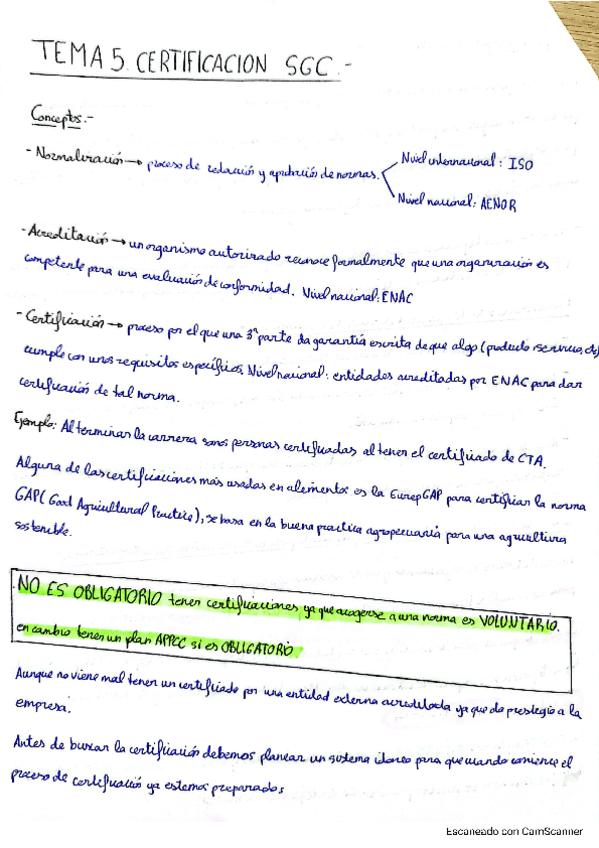 TEMA 5. CERTIFICACION SGC.-
Conceptos.-
- Normalización → proceso de redacción y aprobación de normas.
Nivel internacional: ISO
Nivel nacional: AENOR
- Acreditación → un organismo autorizado reconoce formalmente que una organización es
competente para una evaluación de conformidad. Nivel nacional: ENAC
- Certificación → proceso por el que una 3ª parte da garantía escrita de que algo (producto, servicio, etc)
cumple con unos requisitos específicos. Nivel nacional: entidades acreditadas por ENAC para dar
certificación de tal norma.
Ejemplo: Al terminar la carrera somos personas certificadas al tener el certificado de CTA.
Alguna de las certificaciones más usadas en alimentos es la EurepGAP para certificar la norma
GAP (Good Agricultural Practice), se basa en la buena practica agropecuaria para una agricultura
sostenible.
NO ES OBLIGATORIO tener certificaciones ya que acogerse a una norma es VOLUNTARIO.
en cambio tener un plan APPCC si es OBLIGATORIO
Aunque no viene mal tener un certificado por una entidad externa acreditada ya que da prestigio a la
empresa.
Antes de buscar la certificación debemos planear un sistema idoneo para que cuando comience el
proceso de certificación ya estemos preparados
Escaneado con CamScanner